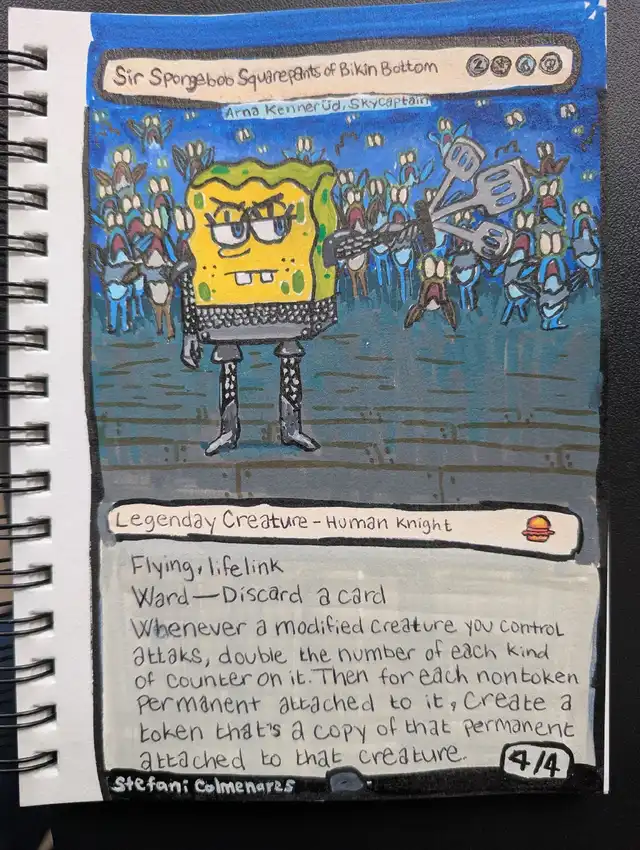 Sir Spongebob Squarepants of Bikin Bottom 2
Arna Kennerüd, Skycaptain
Legenday Creature - Human Knight
Flying, lifelink
Ward—Discard a card
Whenever a modified creature you control
attaks, double the number of each kind
of counter on it. Then for each nontoken
Permanent attached to it, Create a
token that's a copy of that permanent
attached to that creature.
4/4
Stefani Colmenares